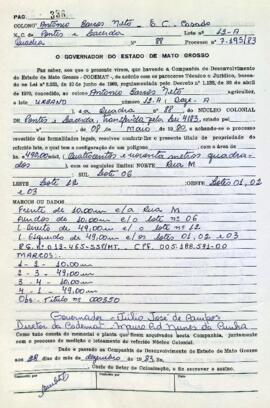 PAG. 336
COLONO Antonio Soares Neto, E. C. Casado
N.C. de Pontes e Lacerda Lote 12-A
Quadra 88 Processo nº 7-195/83
O GOVERNADOR DO ESTADO DE MATO GROSSO
Faz saber, aos que o presente virem, que havendo a Companhia de Desenvolvimento
do Estado de Mato Grosso - CODEMAT -, de acordo com os pareceres Técnico e Jurídico, basea-
dos na Lei nº
de 1978, concedido, ao colono Antonio Soares Neto, agricultor,
o lote URBANO nº 12-A Rua-M
da Quadra nº 88 DO NÚCLEO COLONIAL
de Pontes e Lacerda, transferida pela Lei 4183,
de maio de e achando-se o processo
revestido das formalidades legais, resolveu conferir-lhe o presente título de propriedade
do referido lote, o qual tem a configuração de um polígono
área de 490,00 (Quatrocentos e noventa metros quadra-
dos) com as seguintes limites: NORTE Rua M
SUL Lote 06
LESTE Lote 12 OESTE Lotes 01, 02
e 03
MARCOS OU DADOS
Frente de 10.00m c/a Rua M
Fundos de 10.00m c/o lote nº 06
L. Direito de 49.00m c/o lote nº 12
L. Esquerdo de 49.00m c/os lotes 01, 02 e 03
R.G. nº 013.465-SSP/MT. CPF. 005.188.531-00
MARCOS:
1 - 2 - 10.00m
2 - 3 - 49.00m
3 - 4 - 10.00m
4 - 1 - 49.00m
Obs: Titulo nº 000350
Governador - Júlio José de Campos
Diretor da Codemat Mauro Cid Nunes da Cunha
Como tudo consta do memorial e planta que ficam arquivados nesta Companhia, juntamente
com o processo de medição e loteamento do referido Núcleo Colonial.
Dado e passado na Companhia de Desenvolvimento do Estado de Mato Grosso
aos 28 dias do mês de dezembro de 1983
Chefe do Setor de Colonização, o fiz escrever e assino.